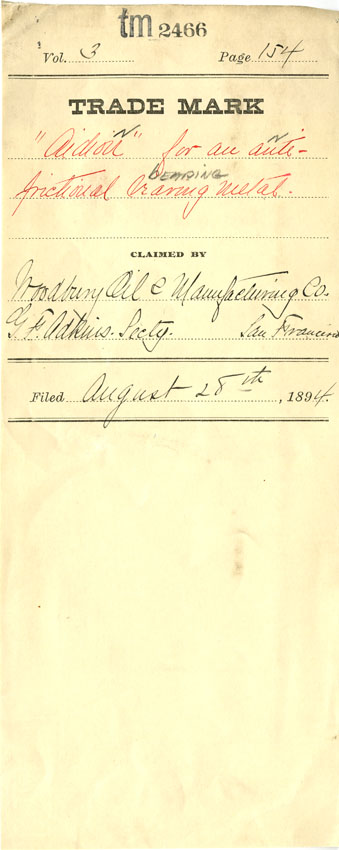 tm 2466
Vol. 3 Page 154
TRADE MARK
N N
" for an anti-
BEARING
frictional bearing metal.
CLAIMED BY
Woodbury Oil & Manufacturing Co.
G. F. Adkins. Secty. San Francisco
Filed August 28th, 1894.